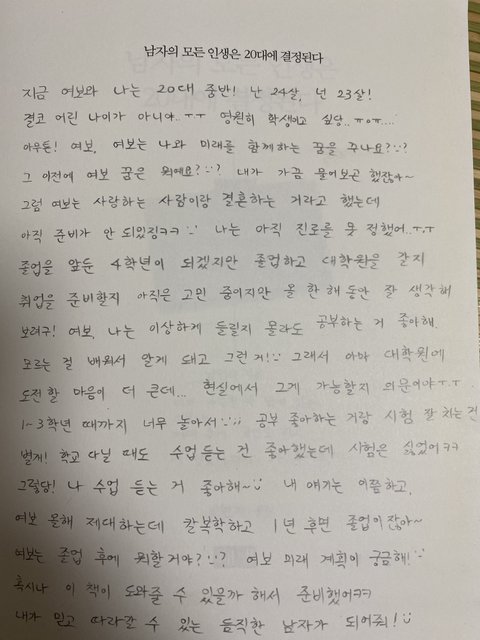 남자의 모든 인생은 20대에 결정된다
지금 여보와 나는 20대 중반! 난 24살, 넌 23살!
결코 어린 나이가 아니야..ㅜㅜ 영원히 학생이고 싶당..ㅠㅇㅠ...
아무튼! 여보, 여보는 나와 미래를 함께하는 꿈을 꾸나요?
그 이전에 여보 꿈은 뭐예요? 내가 가끔 물어보곤 했잖아~
그럼 여보는 사랑하는 사람이랑 결혼하는 거라고 했는데
아직 준비가 안 되있징ㅋㅋ 나는 아직 진로를 못 정했어..ㅜ.ㅜ
졸업을 앞둔 4학년이 되겠지만 졸업하고 대학원을 갈지
취업을 준비할지 아직은 고민 중이지만 올 한 해 동안 잘 생각해
보려구! 여보, 나는 이상하게 들릴지 몰라도 공부하는 거 좋아해.
모르는 걸 배워서 알게 돼고 그런 거! 그래서 아마 대학원에
도전할 마음이 더 큰데... 현실에서 그게 가능할지 의문이야ㅜㅜ.
1~3학년 때까지 너무 놀아서;; 공부 좋아하는 거랑 시험 잘 치는건
별개! 학교 다닐 때도 수업 듣는 건 좋아했는데 시험은 싫었어ㅋㅋ
그렇당! 나 수업 듣는 거 좋아해~ 내 얘기는 이쯤하고,
여보 올해 제대하는데 칼복학하고 1년 후면 졸업이잖아~
여보는 졸업 후에 뭐할거야? 여보 미래 계획이 궁금해!
혹시나 이 책이 도와줄 수 있을까 해서 준비했어ㅋㅋ
내가 믿고 따라갈 수 있는 듬직한 남자가 되어줘!